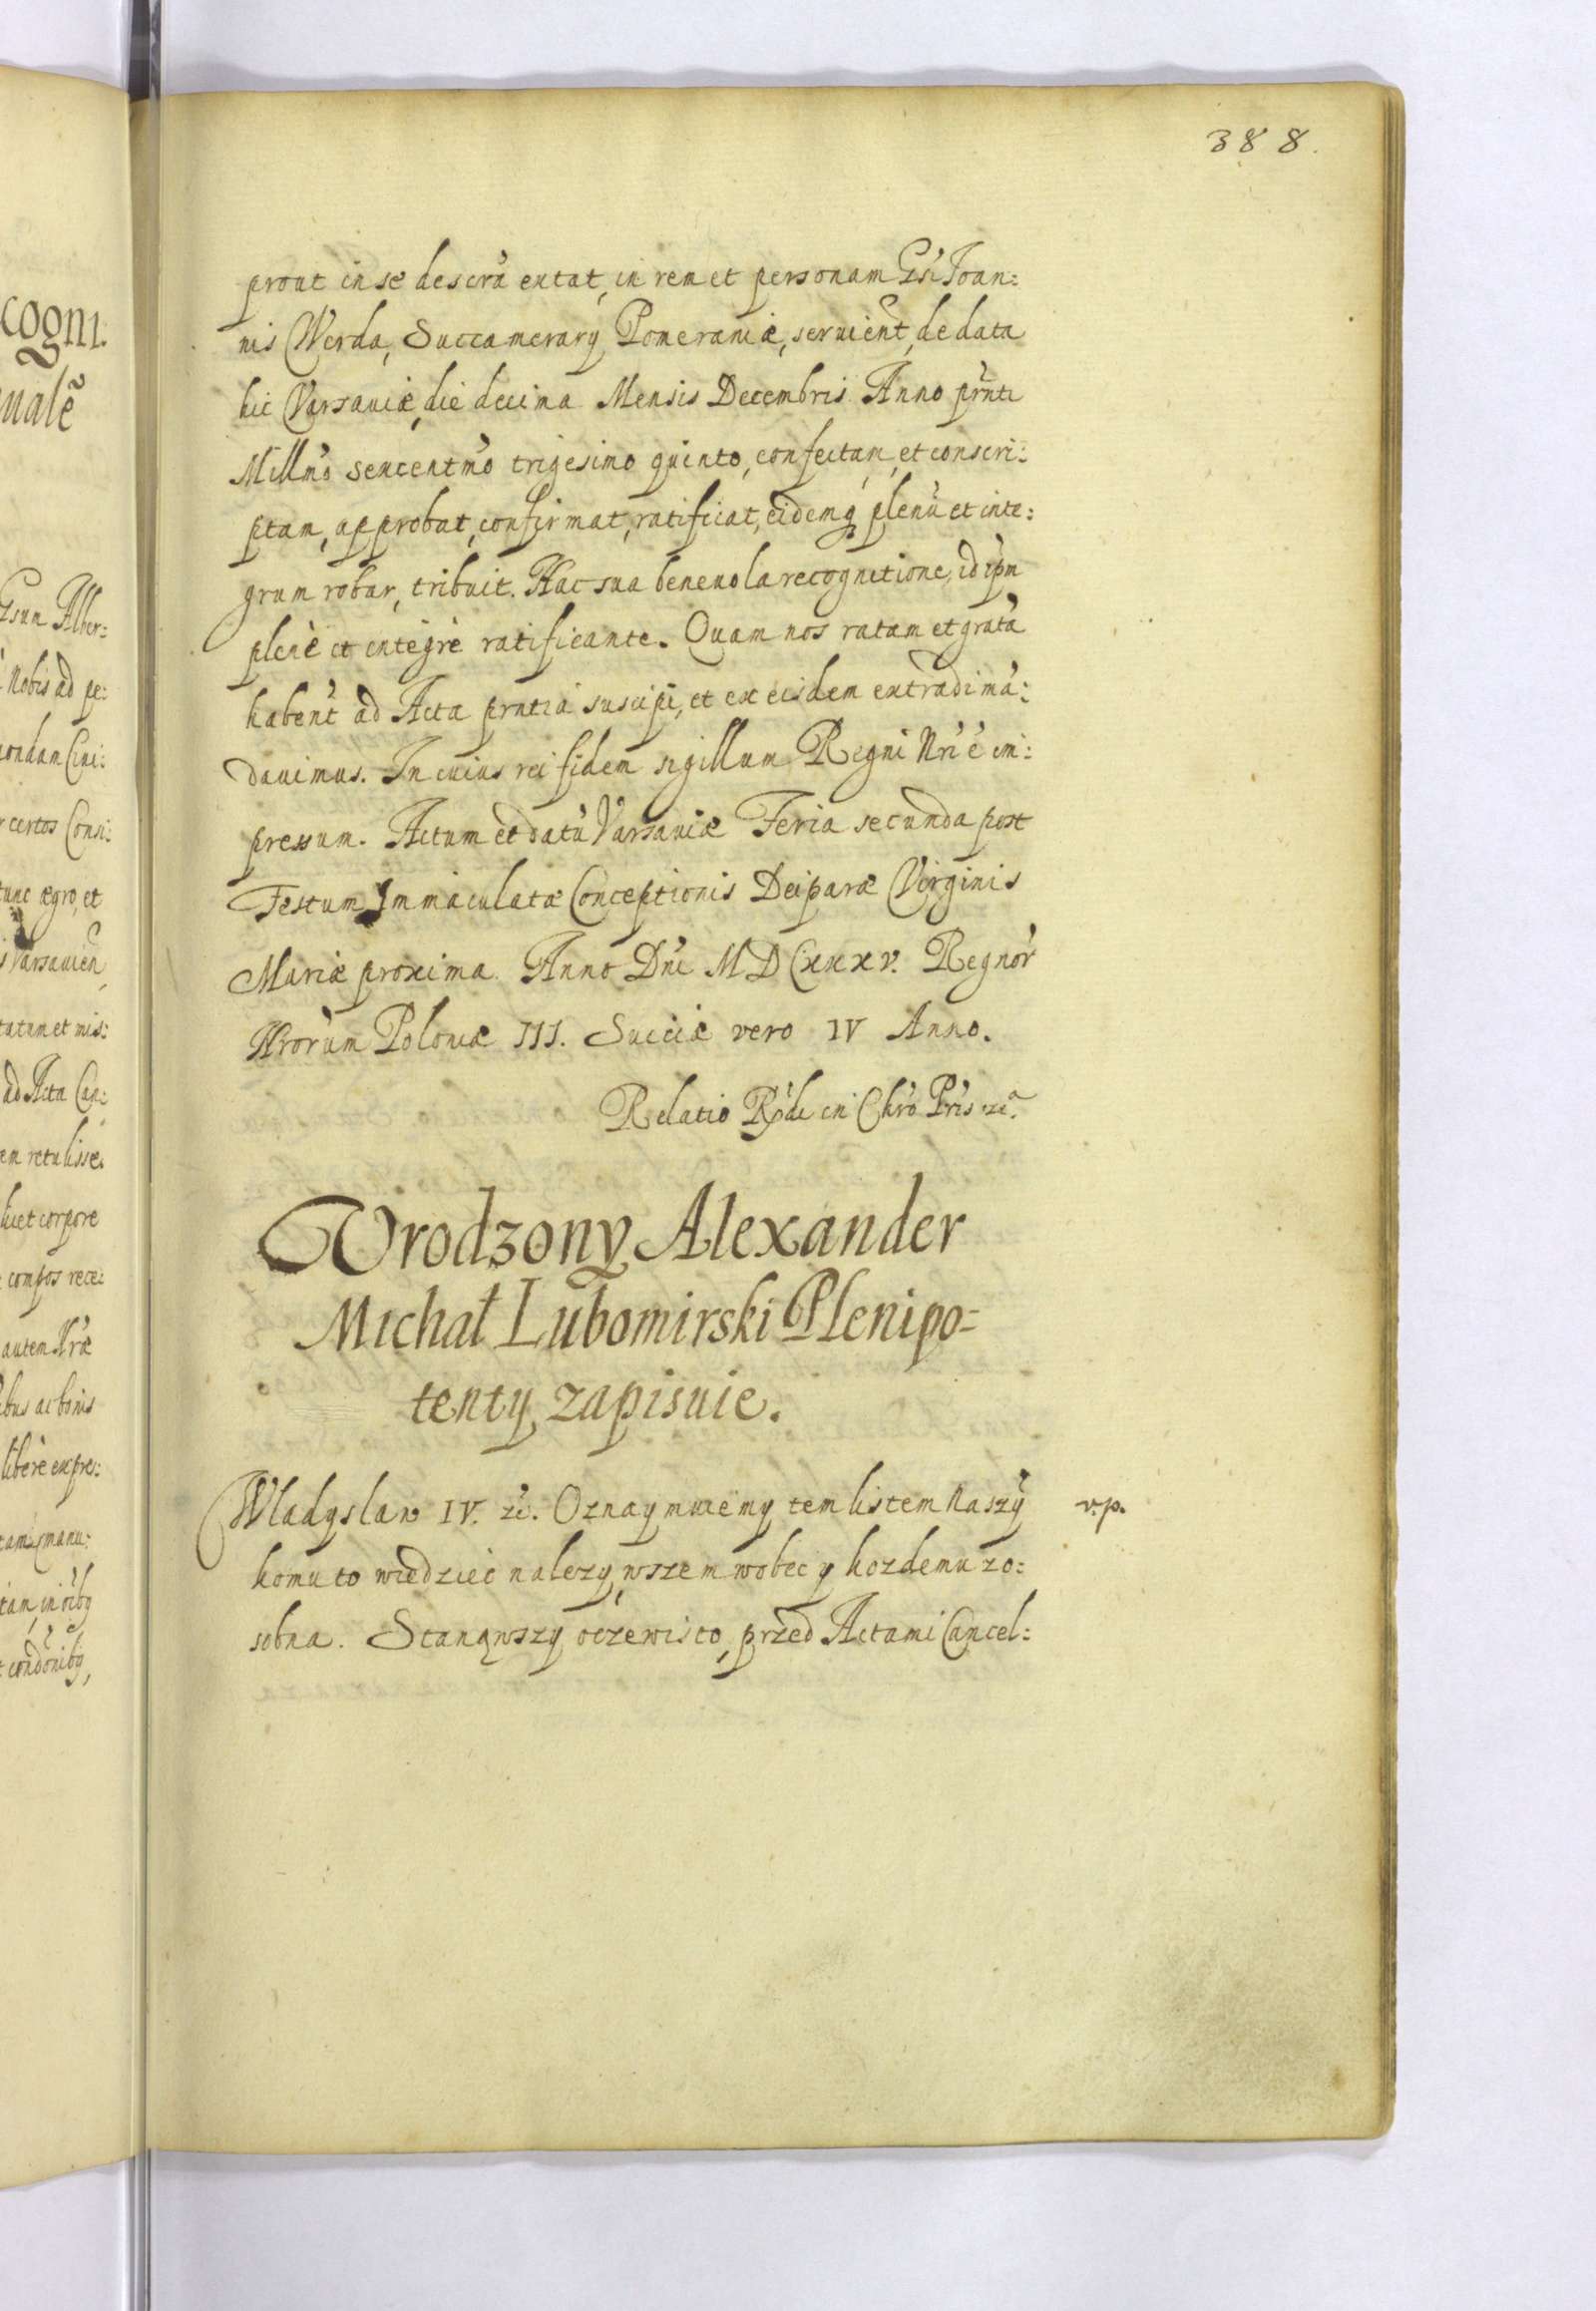 388.
prout in se descra extat, in rem et personam Gsi Ioan:
nis Werda, Succamerary Pomeraniæ, seruient, de data
hic Varsauiæ, die decima Mensis Decembris Anno prnti
Millmo sexcentmo trigesimo quinto, confectam, et conscri:
ptam, approbat, confirmat, ratificat, eidemq plenu et inte:
grum robur, tribuit. Hac sua beneuola recognitione, id ipm
plenè et integrè ratificante. Quam nos ratam et gratã
habent ad Acta prntia suscipi, et ex eisdem extradi mã:
dauimus. In cuius rei fidem sigillum Regni Nri é im:
pressum. Actum et datũ Varsauiæ Feria secunda post
Festum Immaculatæ Conceptionis Deiparæ Virginis
Mariæ proxima. Anno Dni MDCXXXV. Regnor
Nrorum Poloniæ III. Sueciæ vero IV Anno.
Relatio Rdi in Chro Pris zc.
Vrodzony Alexander
Michał Lubomirski Plenipo=
tenty zapisuie.
Wladyslaw IV. zc. Oznaymuiemy tem listem Naszÿ v.p.
komu to wiedziec nalezy, wszem wobec y kozdemu zo:
sobna. Stanąwszy oczewisto, przed Actami Cancel:
cogni.
nalẽ
Gsum Alber:
Nobis ad pe:
certos Consi:
tunc ægro, et
Varsauien
tatum et mis:
ad Acta Can:
em retulisse.
licet corpore
compos rece:
autem Nræ
ibus ac bonis
liberè expres:
manu: